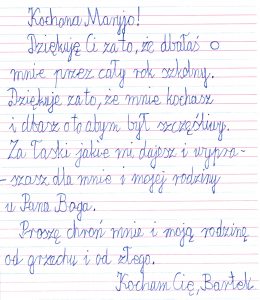 Kochana Maryjo!
Dziękuję Ci za to, że dbałaś o
mnie przez cały rok szkolny.
Dziękuję za to, że mnie kochasz
i dbasz o to abym był szczęśliwy.
Za łaski jakie mi dajesz i wypra-
-szasz dla mnie i mojej rodziny
u Pana Boga.
Proszę chroń mnie i moją rodzinę
od grzechu i od złego.
Kocham Cię, Bartek